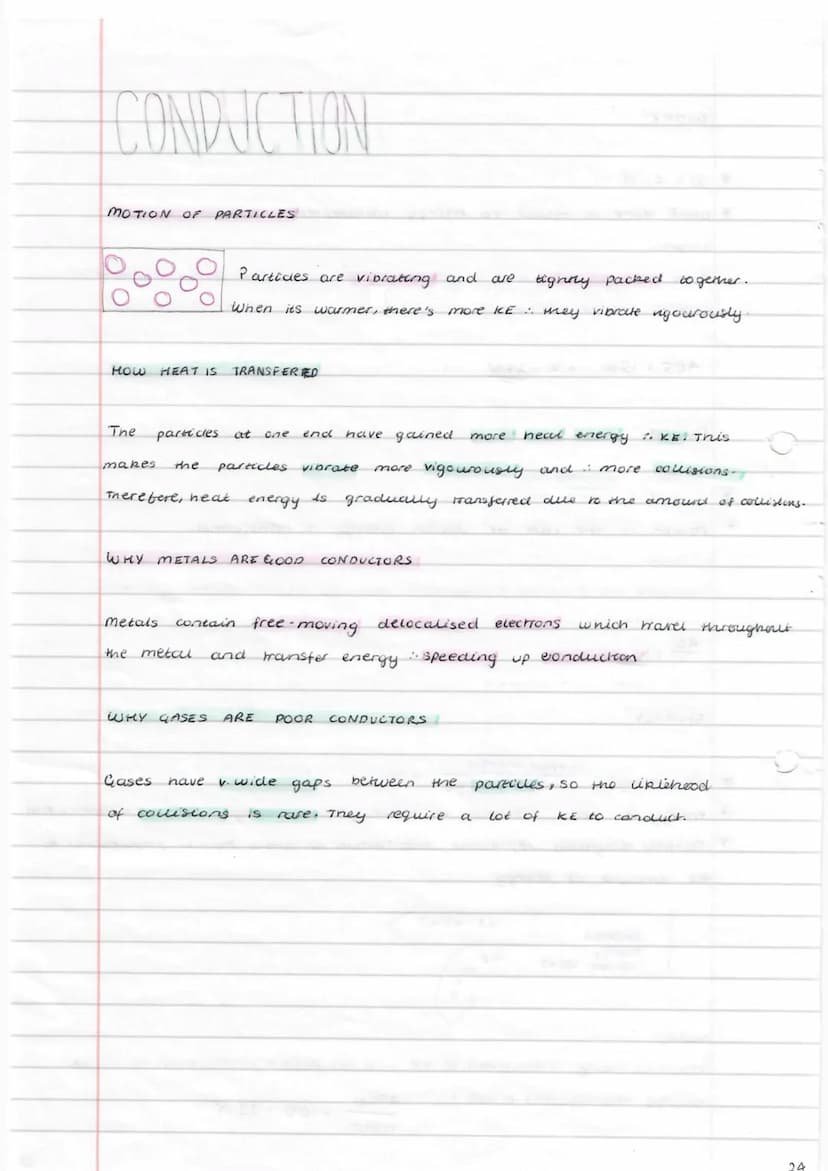 CONDUCTION
MOTION OF PARTICLES
Particles are vibrating and are tightly packed together.
When its warmer, there's more KE ∴ they vibrate rigourously.
HOW HEAT IS TRANSFERRED
The particles at one end have gained more heat energy ∴ KE. This
makes the particles vibrate more vigourously and ∴ more collisions.
Therefore, heat energy is gradually transferred due to the amount of collisions.
WHY METALS ARE GOOD CONDUCTORS
Metals contain free-moving delocalised electrons which travel throughout
the metal and transfer energy ∴ speeding up conduction
WHY GASES ARE POOR CONDUCTORS
Gases have v. wide gaps between the particles, so the liklehood
of collisions is rare. They require a lot of KE to conduct.
24